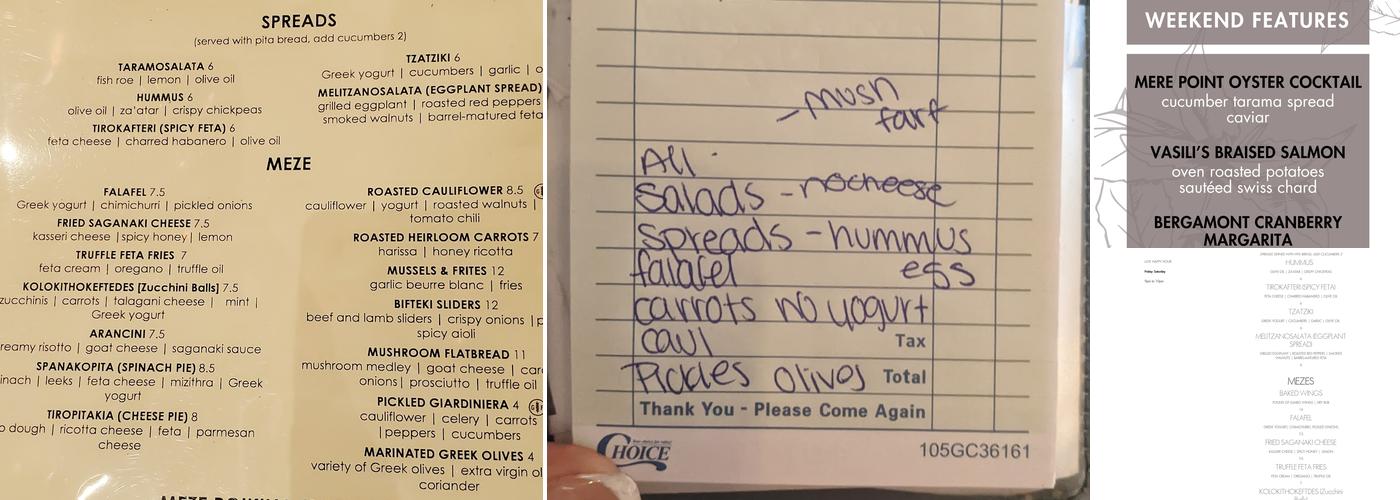 SPREADS
(served with pita bread, add cucumbers 2)
TARAMOSALATA 6
fish roe | lemon | olive oil
HUMMUS 6
olive oil | za'atar | crispy chickpeas
TIROKAFTERI (SPICY FETA) 6
feta cheese | charred habanero | olive oil
TZATZIKI 6
Greek yogurt | cucumbers | garlic | o
MELITZANOSALATA (EGGPLANT SPREAD)
grilled eggplant | roasted red peppers
smoked walnuts | barrel-matured feta
MEZE
FALAFEL 7.5
Greek yogurt | chimichurri | pickled onions
FRIED SAGANAKI CHEESE 7.5
kasseri cheese |spicy honey| lemon
TRUFFLE FETA FRIES 7
feta cream | oregano | truffle oil
KOLOKITHOKEFTEDES [Zucchini Balls] 7.5
zucchinis | carrots | talagani cheese | mint |
Greek yogurt
ARANCINI 7.5
reamy risotto | goat cheese | saganaki sauce
SPANAKOPITA (SPINACH PIE) 8.5
inach | leeks | feta cheese | mizithra | Greek
yogurt
TIROPITAKIA (CHEESE PIE) 8
o dough | ricotta cheese | feta | parmesan
cheese
ROASTED CAULIFLOWER 8.5
cauliflower | yogurt | roasted walnuts |
tomato chili
ROASTED HEIRLOOM CARROTS 7
harissa | honey ricotta
MUSSELS & FRITES 12
garlic beurre blanc | fries
BIFTEKI SLIDERS 12
beef and lamb sliders | crispy onions |p
spicy aioli
MUSHROOM FLATBREAD 11
mushroom medley | goat cheese | car
onions| prosciutto | truffle oil
PICKLED GIARDINIERA 4
cauliflower | celery | carrots
|peppers | cucumbers
MARINATED GREEK OLIVES 4
variety of Greek olives | extra virgin ol
coriander
- mush
fart
All
Salads - no cheese
Spreads - hummus
falafel egg
carrots no yogurt
caul Tax
Pickles Olives Total
Thank You - Please Come Again
CHOICE
105GC36161
WEEKEND FEATURES
MERE POINT OYSTER COCKTAIL
cucumber tarama spread
caviar
VASILI'S BRAISED SALMON
oven roasted potatoes
sautéed swiss chard
BERGAMONT CRANBERRY
MARGARITA
HUMMUS
TIROKAFTERI (SPICY FETA)
TZATZIKI
GREEK YOGURT | CUCUMBERS | GARLIC | OLIVE OIL
MELITZANOSALATA (EGGPLANT
SPREAD)
MEZES
BAKED WINGS
FALAFEL
FRIED SAGANAKI CHEESE
KASSERI CHEESE | SPICY HONEY | LEMON
TRUFFLE FETA FRIES
FETA CREAM | OREGANO | TRUFFLE OIL
KOLOKITHOKEFTDES (Zucchini